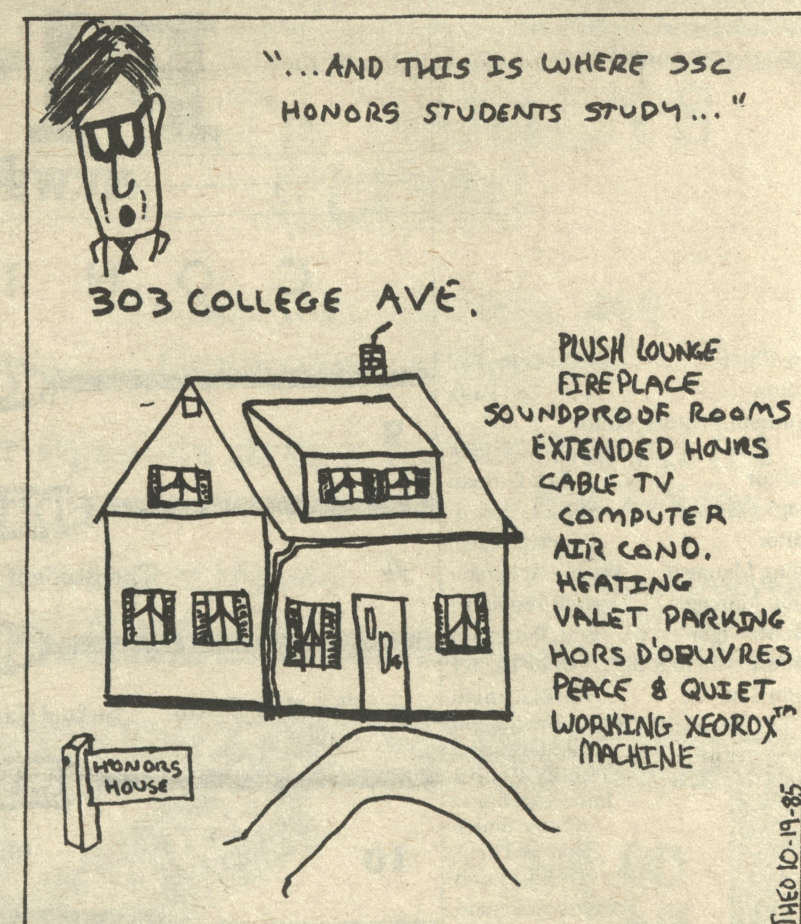 "...AND THIS IS WHERE SSC
HONORS STUDENTS STUDY..."
303 COLLEGE AVE.
PLUSH LOUNGE
FIREPLACE
SOUNDPROOF ROOMS
EXTENDED HOURS
CABLE TV
COMPUTER
AIR COND.
HEATING
VALET PARKING
HORS D'OEUVRES
PEACE & QUIET
WORKING XEOROX™
MACHINE
HONORS
HOUSE
THEO 10-19-85